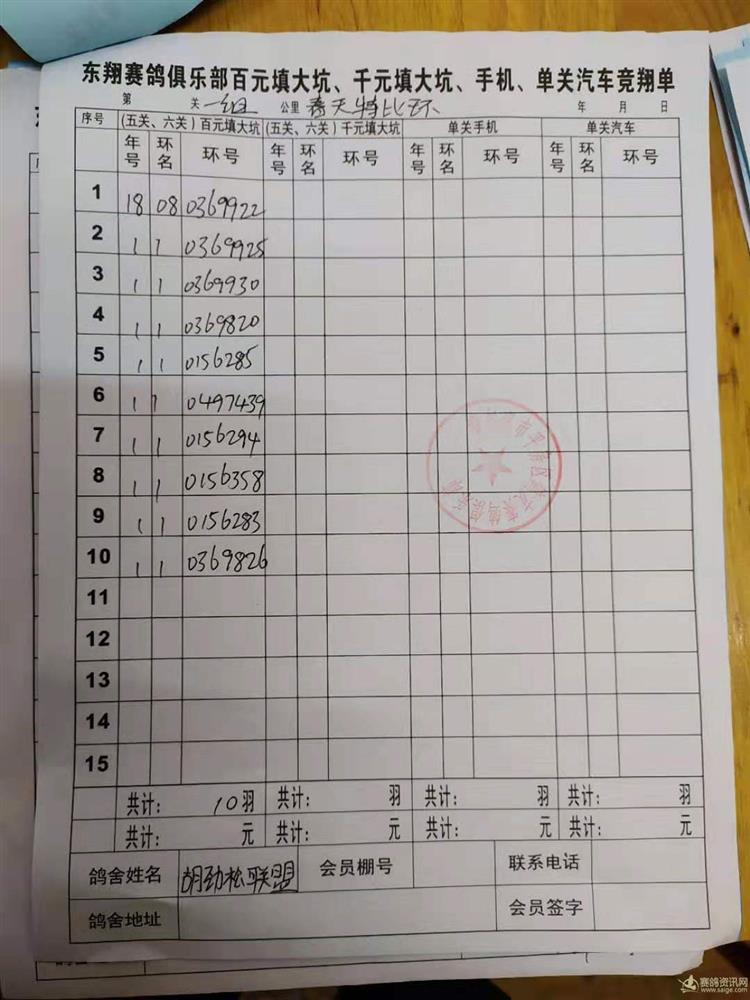 东翔赛鸽俱乐部百元填大坑、千元填大坑、手机、单关汽车竞翔单
第 关 一组 公里 春天特比环 年 月 日
序号 (五关、六关)百元填大坑 (五关、六关)千元填大坑 单关手机 单关汽车
年号 环名 环号 年号 环名 环号 年号 环名 环号 年号 环名 环号
1 18 08 0369922
2 1 1 0369925
3 1 1 0369930
4 1 1 0369820
5 1 1 0156285
6 1 1 0497439
7 1 1 0156294
8 1 1 0156358
9 1 1 0156283
10 1 1 0369826
11
12
13
14
15
共计: 10羽 共计: 羽 共计: 羽 共计: 羽
共计: 元 共计: 元 共计: 元 共计: 元
鸽舍姓名 胡劲松联盟 会员棚号 联系电话
鸽舍地址 会员签字
赛鸽资讯网
www.saige.com